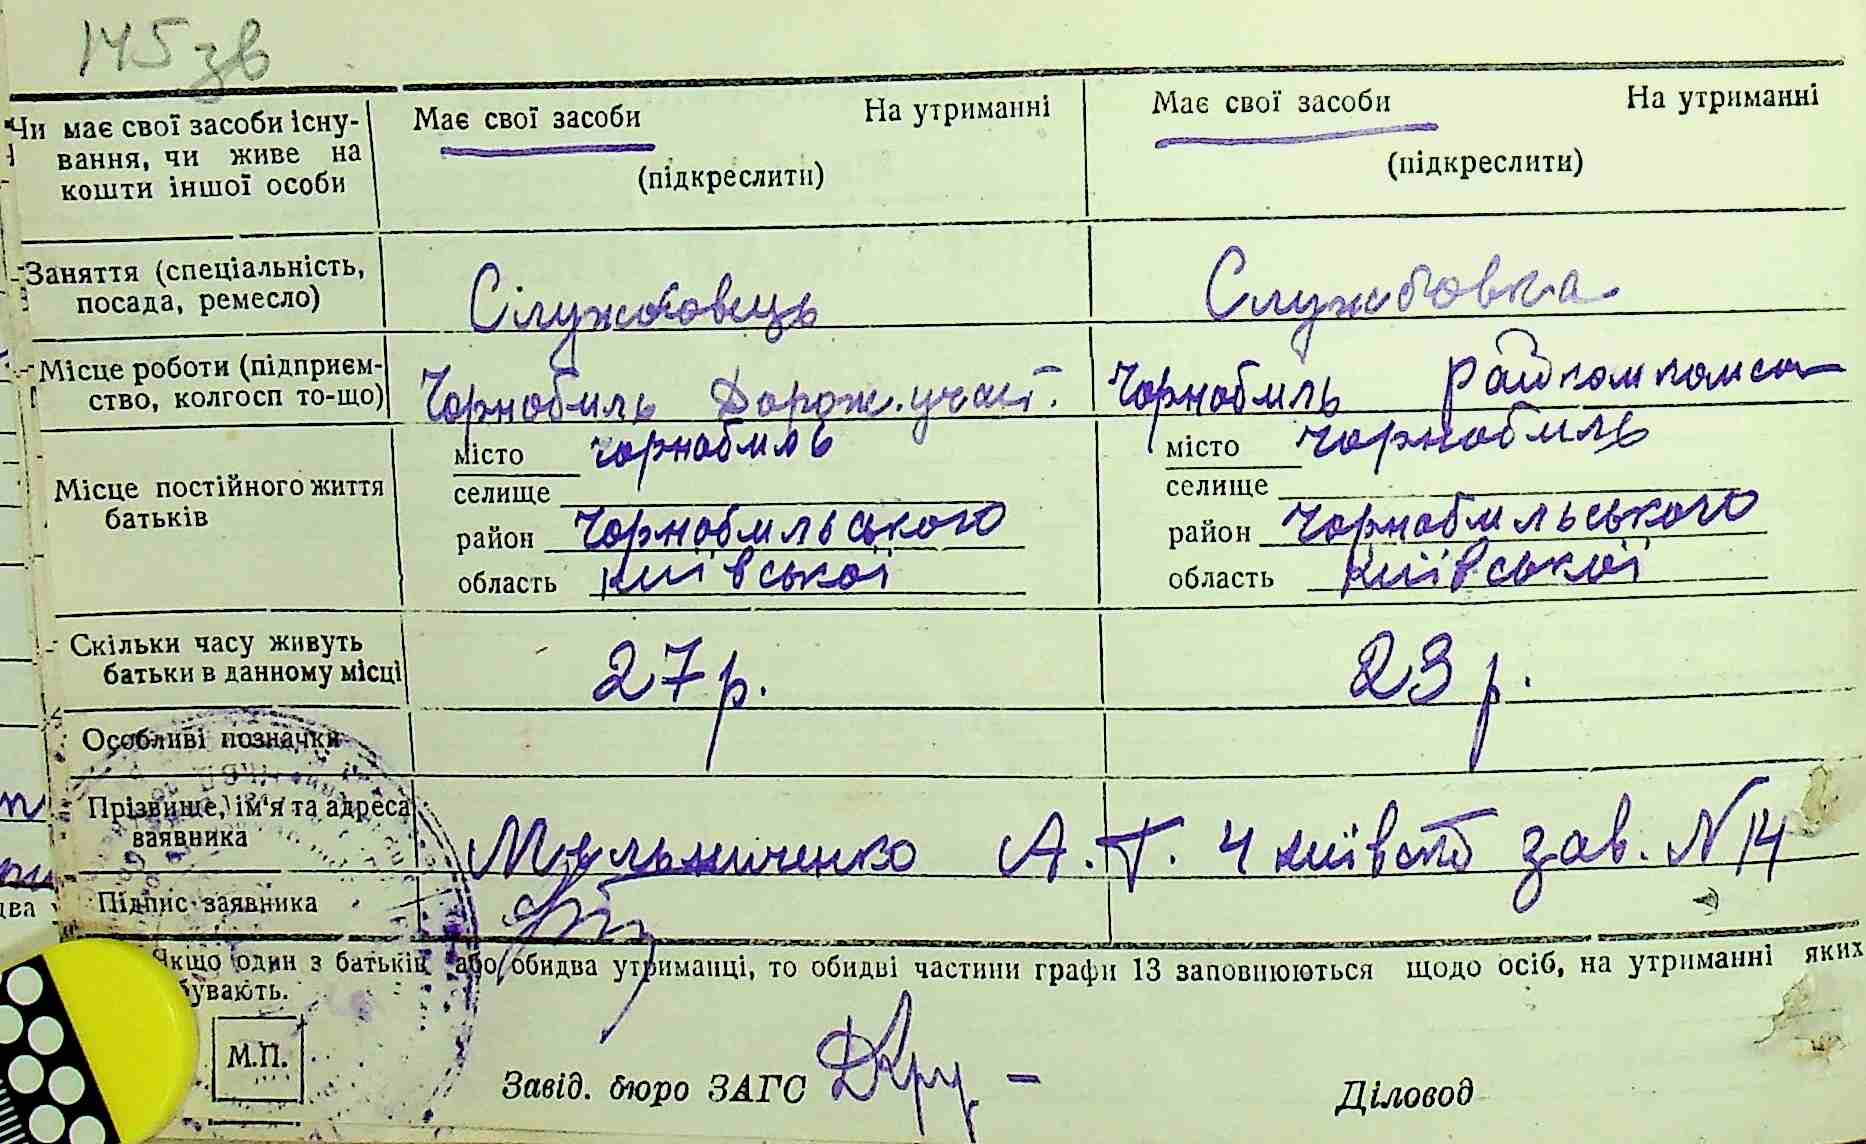 145 зв
Чи має свої засоби існу-
вання, чи живе на
кошти іншої особи
Має свої засоби На утриманні
(підкреслити)
Має свої засоби На утриманні
(підкреслити)
Заняття (спеціальність,
посада, ремесло)
Службовець
Службовка
Місце роботи (підприєм-
ство, колгосп то-що)
Чорнобиль Дорож. участ.
Чорнобиль Райком комсо
Місце постійного життя
батьків
місто Чорнобиль
селище
район Чорнобильського
область Київської
місто Чорнобиль
селище
район Чорнобильського
область Київської
Скільки часу живуть
батьки в данному місці
27 р.
23 р.
Особливі позначки
Прізвище, ім'я та адреса
заявника
Мельниченко А. Г. Ч Київської зав. N 14
Підпис заявника
Якщо один з батьків або обидва утриманці, то обидві частини графи 13 заповнюються щодо осіб, на утриманні яких
бувають.
М.П.
Завід. бюро ЗАГС
Діловод